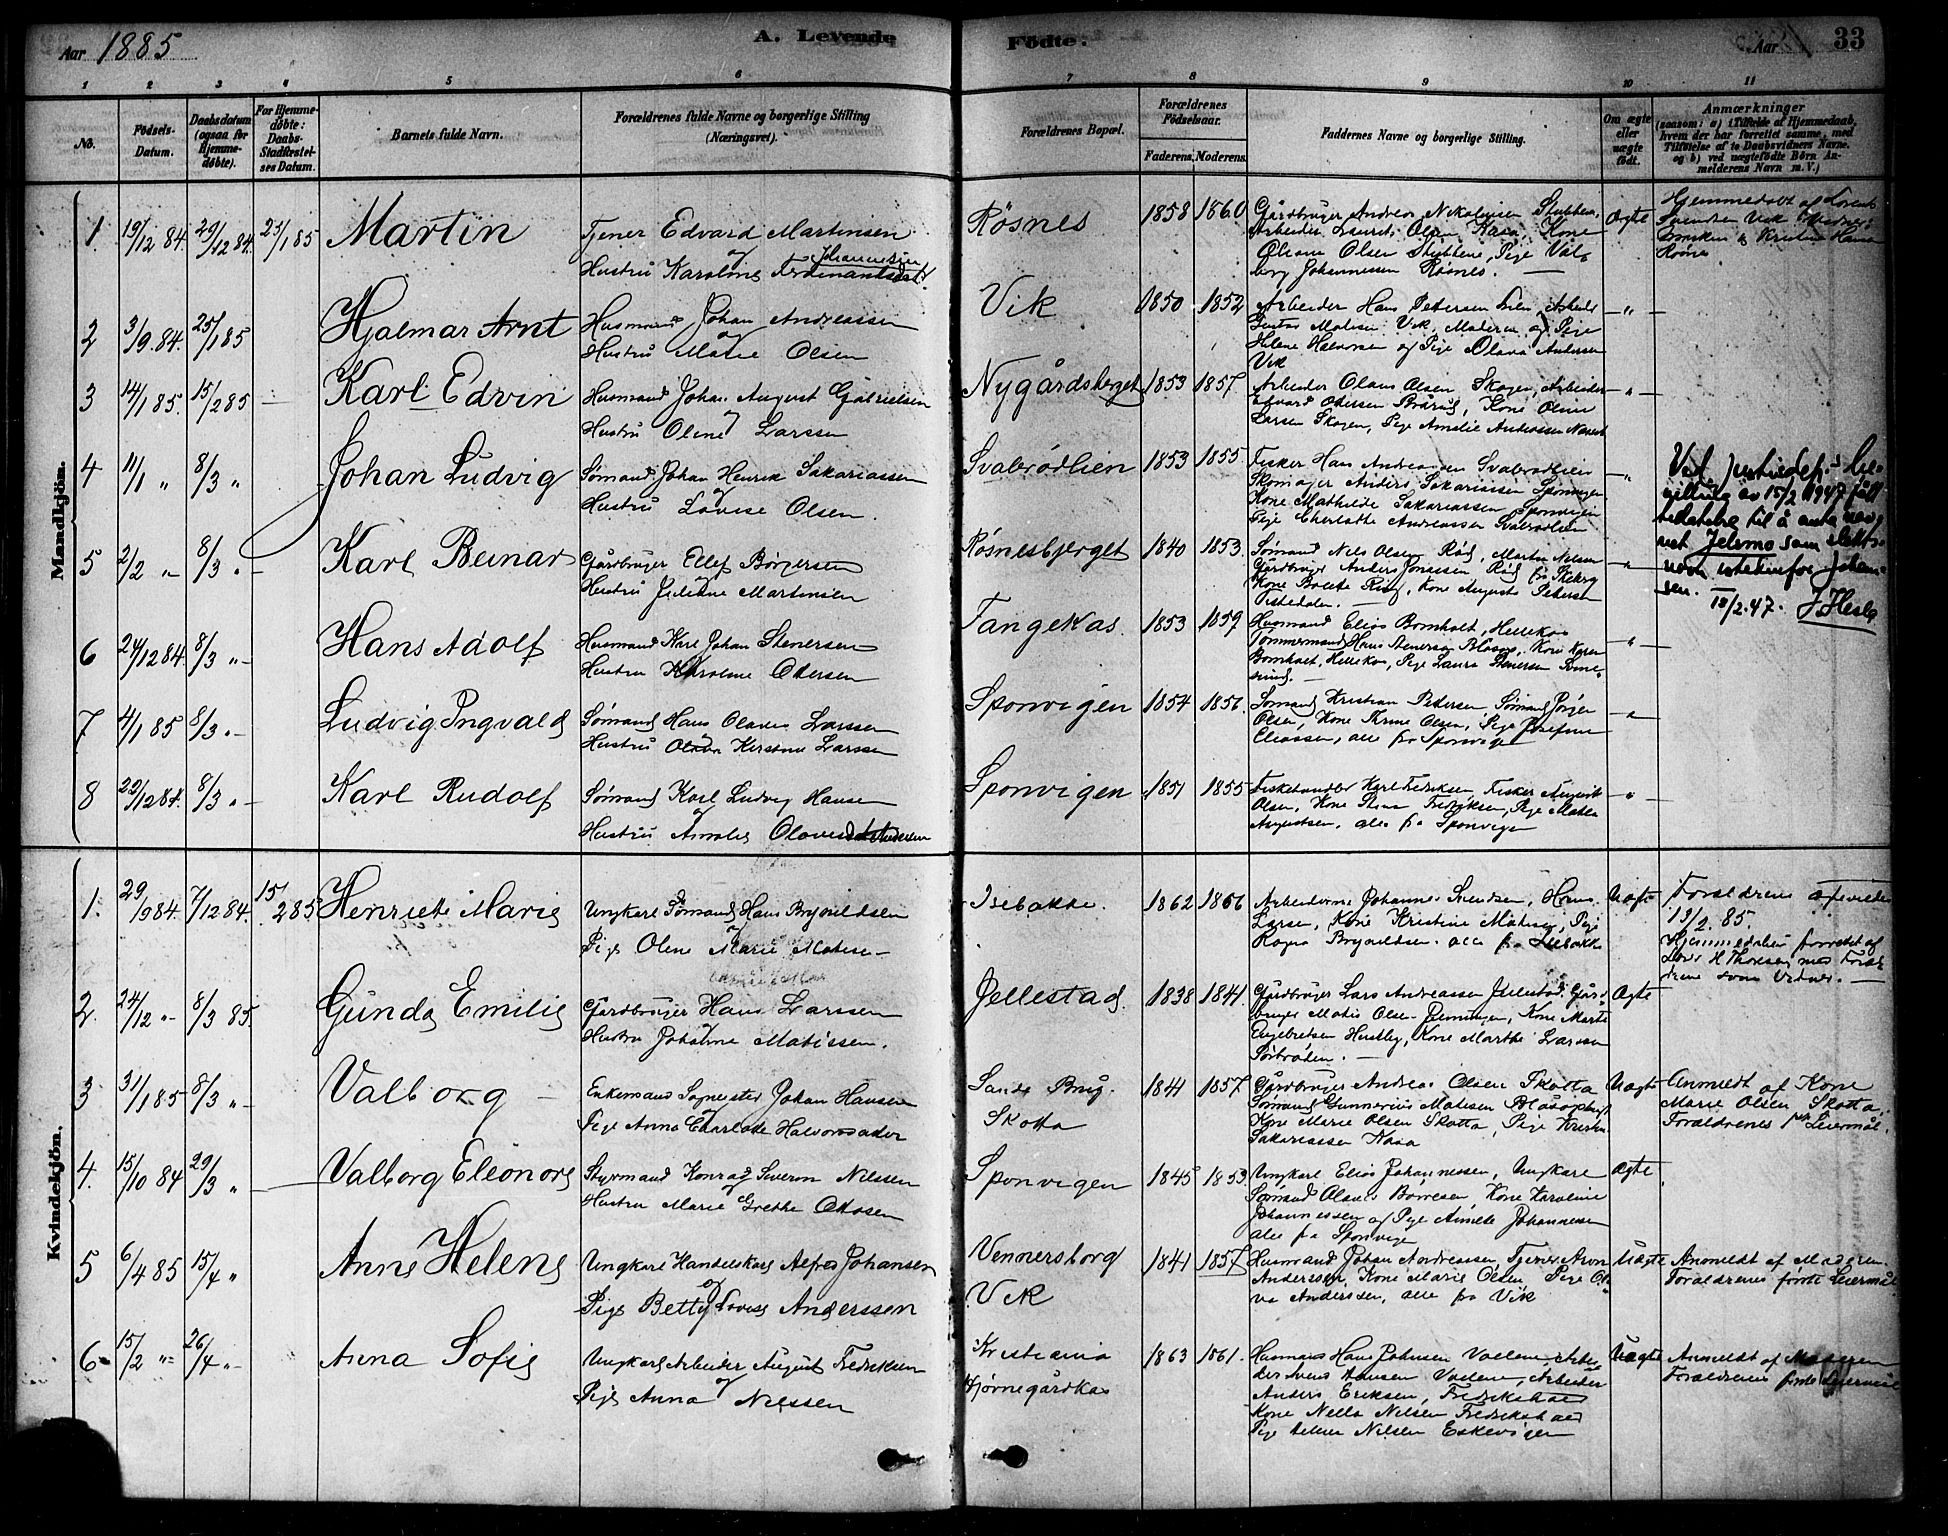 Aar 1885
A. Levende
Fødte.
Aar
33
1 2 3 4 5 6 7 8 9 10 11
No.
Fødsels-Datum.
Daabsdatum (ogsaa for Hjemme-døbte).
For Hjemme-døbte: Daabs-Stadfæstel-ses Datum.
Barnets fulde Navn.
Forældrenes fulde Navne og borgerlige Stilling (Næringsvei).
Forældrenes Bopæl.
Forældrenes Fødselsaar.
Faderens. Moderens.
Faddernes Navne og borgerlige Stilling.
Om ægte eller uægte født.
Anmærkninger (saasom: a) i Tilfælde af Hjemmedaab, hvem der har forrettet samme, med Tilføielse af to Daabsvidners Navne. og b) ved uægtefødte Børn An-melderens Navn m. V.)
Mandkjön.
1 19/12 84. 29/12 84. 25/1 85 Martin
Tjener Edvard Martinsen
og Johannesen
Hustru Karoline Ferdinantsdat.
Røsnes 1858 1860
Gårdbruger Andreas Nikolaisen Stubben,
Arbeider Laurits Olsen Kasa Kone
Oliane Olsen Stubbene, Pige Val-
borg Johannessen Røsnes. —
Ægte
Hjemmedøbt af
Svendsen Vik
Røsnes
2 3/9 84. 25/1 85 Hjalmar Arnt
Husmand Johan Andreassen
og
Hustru Marie Olsen
Vik 1850 1852
Arbeider Hans Petersen Lien, Arbeid
Gustav Matisen Vik, Moderen og Pige
Helene Halvorsen og Pige Olava Andersen
Vik
— " —
3 14/1 85. 15/2 85 — Karl Edvin
Husmand Johan August Gabrielsen
og
Hustru Oline Larssen
Nygårdsberget 1853 1857
Arbeider Olaus Olsen Skogen, Arbeider
Edvard Ottersen Brårud, Kone Oline
Larsen Skogen, Pige Amalie Andreassen
— " —
4 11/1 " 8/3 " Johan Ludvig
Sømand Johan Henrik Sakariassen
og
Hustru Lovise Olsen.
Svalerødlien 1853 1855
Fisker Hans Andreassen Svalerødlien
Skomager Anders Sakariassen Sponvigen
Kone Mathilde Sakariassen Sponvigen
Pige Charlotte Andreassen Svalerødlien
— " —
Ved justisdep.s be-
villing av 15/2 1947 fått
tillatelse til å anta nav-
net Jelsmo som slekts-
navn istedenfor Johan-
sen. 18/2.47. J. Hesle
5 2/2 " 8/3 " — Karl Beinar
Gårdbruger Ellef Børjersen
Hustru Juliane Martinsen
Røsnesbjerget 1840 1853.
Sømand Nils Olsen Rød, Martin Nilsen
Gårdbruger Anders Jonassen Rød fra Skeberg
Kone Bolette Ring, Kone Augusta Petersen
Tistedalen. —
— " —
6 24/12 84. 8/3 " — Hans Adolf
Husmand Karl Johan Stenersen
og
Hustru Karoline Ottersen
Tangekas. 1853 1859
Husmand Elias Bomholt, Hellekas
Tømmermand Hans Stenersen Blåsop, Kone Karen
Bomholt, Hellekas, Pige Laura Stenersen Svine-
sund. —
— " —
7 4/1 85 8/3 " — Ludvig Ingvald
Sømand Hans Olaves Larssen
Hustru Olava Kirstine Larssen
Sponvigen 1854 1856.
Sømand Kristian Pedersen, Sømand Jørgen
Olsen, Kone Trine Olsen, Pige Josefine
Eliassen, alle fra Sponvigen
— " —
8 22/12 84. 8/3 " — Karl Rudolf
Sømand Karl Ludvig Hansen
og
Hustru Amalie
Sponvigen 1851 1855
Fiskehandler Karl Fredriksen, Fisker August
Olsen, Kone Stina Fredriksen, Pige Matea
Augustsen, alle fra Sponvigen
— " —
Kvindekjön.
1. 29/9 84. 7/12 84. 15/2 85 Henriette Marie
Ungkarl Sømand Hans Brynildsen
og
Pige Olene Marie Matisen —
Isebakke. 1862 1866
Arbeiderne Johannes Svendsen, Hans
Larsen, Kone Kristine Matisen, Pige
Ragna Brynildsen. alle fra Isebakke
Uægte
Forældrene
13/2. 85.
Hjemmedåben forrettet af
H Thoresen med Foræl-
drene som Vidner. —
2. 24/12 " 8/3 85. Gunda Emilie
Gårdbruger Hans Larssen
og
Hustru Johanne Matissen.
Jellestad 1838 1841.
Gårdbruger Lars Andreassen Jellestad, Gård-
bruger Matis Olsen Remmingen, Kone Marte
Engebretsen Hustby, Kone Marthe Larsen
Sørbrøden. —
Ægte
3 31/1 85 8/3 " — Valborg —
Enkemand Sagmester Johan Hansen
og
Pige Anna Charlotte Halvorsdatter
Sande Brug.
Skotta
1841 1857
Gårdbruger Andreas Olsen Skotta
Sømand Gunnerius Matisen Blåsopbugt
Kone Marie Olsen Skotta, Pige
Sakariassen Kasa
Uægte
Anmeldt af Kone
Marie Olsen Skotta,
Forældrenes Leiermål.
4. 15/10 84 29/3 " Valborg Eleonore
Styrmand Konrad Severin Nilssen
og
Hustru Marie Grethe Ottosen
Sponvigen 1845 1853
Ungkarl Elias Johannessen, Ungkarl
Sømand Olaves Børresen, Kone Karoline
Johannessen og Pige Amelie Johannessen
alle fra Sponvigen
Ægte
5 6/4 85 15/4 " Anne Helene
Ungkarl Handelskarl Alfred Johansen
og
Pige Betty Lovise Anderssen
Vennersborg
Vik
1841 1857
Husmand Johan Andreassen, Tjener Aron
Anderssen, Kone Marie Olsen, Pige Ola-
va Anderssen, alle fra Vik
Uægte
Anmeldt af Moderen.
Forældrenes første Leiermål
6 15/2 " 26/4 " Anna Sofie
Ungkarl Arbeider August Fredriksen
og
Pige Anna Nilssen
Kristiania
Bjørnegårdkas
1863 1861.
Husmand Hans Johnsen Vaelene, Arbei-
der Svens Hansen Vaelene, Arbeider
Anders Eriksen, Fredrikshald
Kone Nella Nilsen Fredrikshald
Pige Nilsen Eskevigen
Uægte
Anmeldt af Moderen
Forældrenes første Leiermål